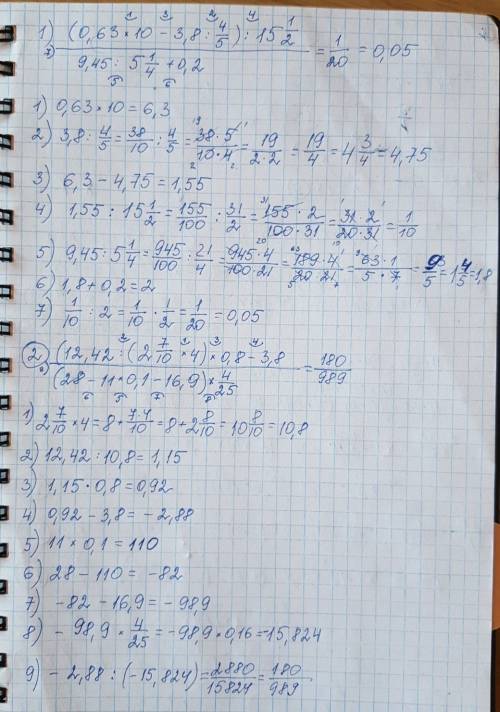 1) (0,63×10 − 3,8 : 4/5) : 15 1/2 / 9,45 : 5 1/4 + 0,2 = 1/20 = 0,05
1) 0,63×10 = 6,3
2) 3,8 : 4/5 = 38/10 : 4/5 = 38·5/10·4 = 19/2·2 = 19/4 = 4 3/4 = 4,75
3) 6,3 − 4,75 = 1,55
4) 1,55 : 15 1/2 = 155/100 : 31/2 = 155·2/100·31 = 31·2/20·31 = 1/10
5) 9,45 : 5 1/4 = 945/100 : 21/4 = 945·4/100·21 = 189·4/20·21 = 63·1/5·7 = 9/5 = 1 4/5 = 1,8
6) 1,8 + 0,2 = 2
7) 1/10 : 2 = 1/10 · 1/2 = 1/20 = 0,05
2 (12,42 : (2 7/10 × 4) × 0,8 − 3,8 / (28 − 11×0,1 − 16,9) × 4/25 = 180/989
1) 2 7/10 × 4 = 8 + 7·4/10 = 8 + 2 8/10 = 10 8/10 = 10,8
2) 12,42 : 10,8 = 1,15
3) 1,15 · 0,8 = 0,92
4) 0,92 − 3,8 = −2,88
5) 11 × 0,1 = 110
6) 28 − 110 = −82
7) −82 − 16,9 = −98,9
8) −98,9 × 4/25 = −98,9 × 0,16 = −15,824
9) −2,88 : (−15,824) = 2880/15824 = 180/989